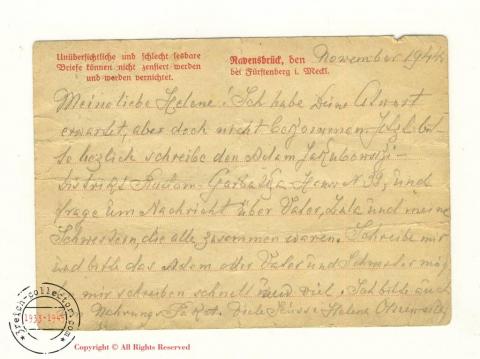 Unübersichtliche und schlecht lesbare
Briefe können nicht zensiert werden
und werden vernichtet.
Ravensbrück, den November 1944
bei Fürstenberg i. Meckl.
Meine liebe Helene! Ich habe Deine Atwort
erwartet, aber doch nicht bekommen. Jetzt bit-
te herzlich schreibe den Adam Jakubowski-
distrikt Radom-Garbatka Haus N und
frage um Nachricht über Vater, und meine
Schwestern, die alle zusammen waren. Schreibe mir
und bitte das Adam oder Vater und Schwester mög
mir schreiben schnell und viel. Ich bitte auch
Nahrungs Paket. Viele Küsse Helene
3reich-collector.com
1933-1945
Copyright © All Rights Reserved